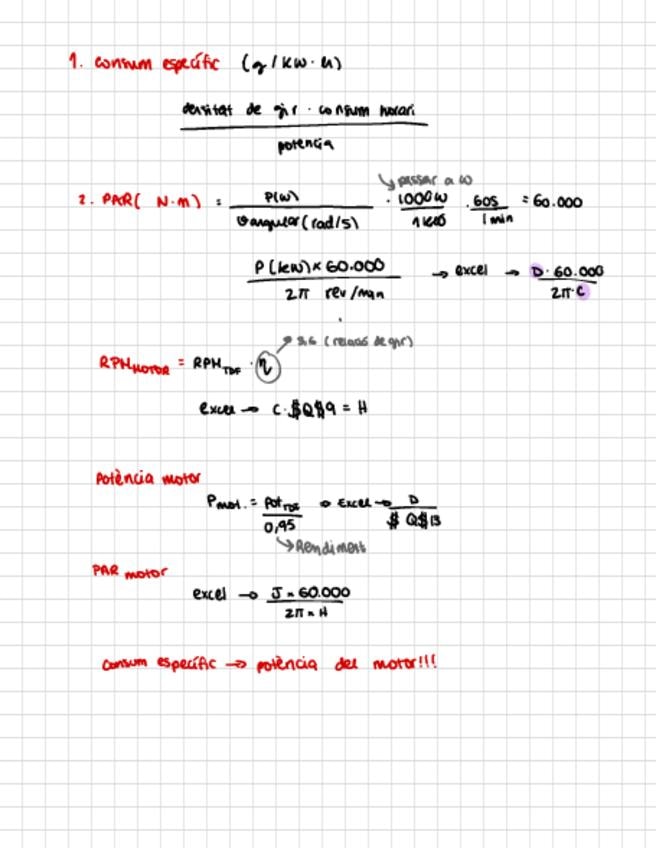 1. Consum específic (g/kW·h)
densitat de gir · consum horari
potencia
2. PAR( N·m) = P(W) / Vangular(rad/s) · 1000W / 1kW · 60s / 1min = 60.000
↳ passar a W
P(kW) × 60.000 / 2π rev/min → excel → D·60.000 / 2π·C
3,6 (relació de gir)
RPM MOTOR = RPM TDF · η
excel → C·$Q$9 = H
Potència motor
P mot. = Pot TDF / 0,95 → Excel → D / $Q$13
↳ Rendiment
PAR motor
excel → J × 60.000 / 2π × H
Consum específic → potència del motor!!!